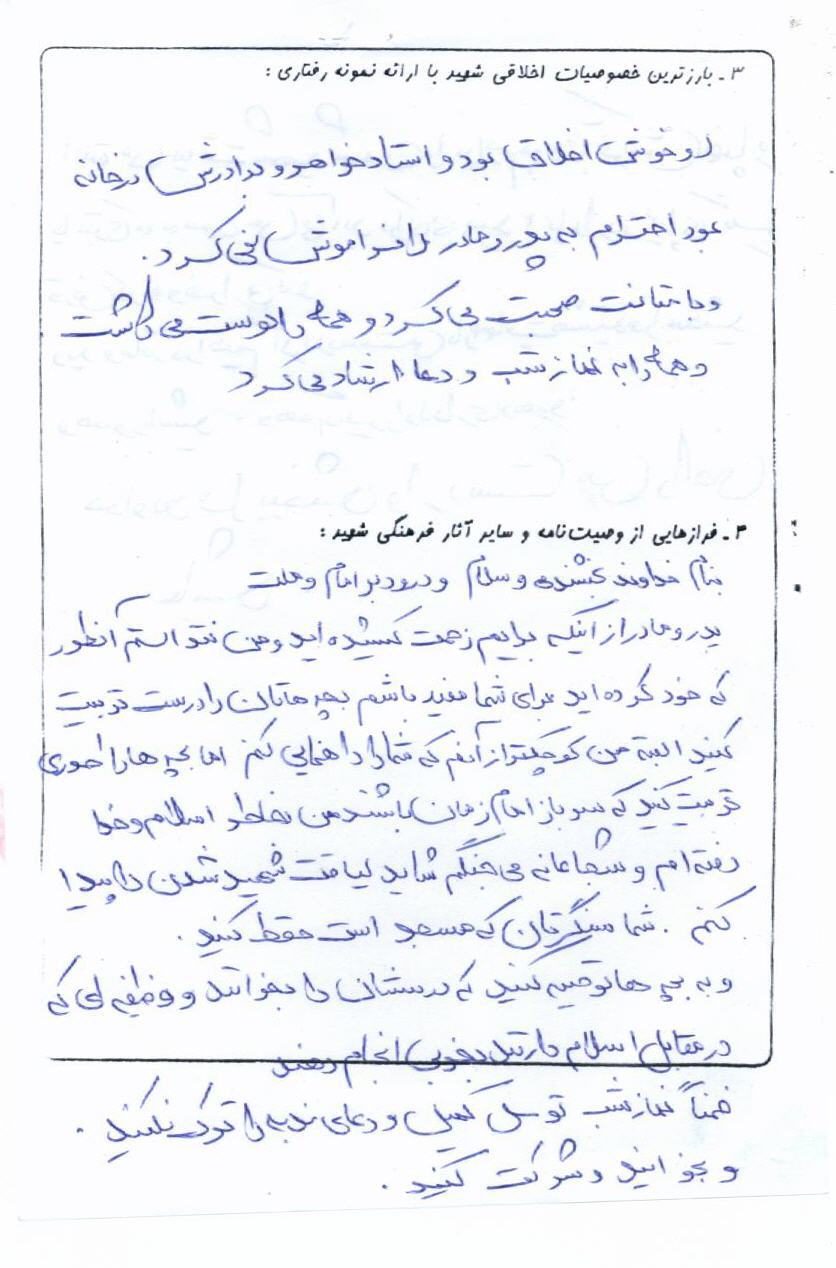 ۳ـ بارزترین خصوصیات اخلاقی شهید با ارائه نمونه رفتاری :
او خوش اخلاق بود و استاد خواهر و برادرش در خانه
بود احترام به پدر و مادر را فراموش نمی کرد .
و با متانت صحبت می کرد و همه را دوست می داشت
و همه را به نماز شب و دعا ارشاد می کرد
۴ـ فرازهایی از وصیت‌نامه و سایر آثار فرهنگی شهید :
بنام خداوند بخشنده و سلام و درود بر امام و ملت
پدر و مادر از آنکه برایم زحمت کشیده اید و من نتوانستم آنطور
که خود کرده اید برای شما مفید باشم بچه هاتان را درست تربیت
کنید البته من کوچکتر از آنم که شما را راهنمایی کنم اما بچه ها را طوری
تربیت کنید که سرباز امام زمان باشند من بخاطر اسلام و خدا
رفته ام و شجاعانه می جنگم شاید لیاقت شهید شدن را پیدا
کنم . شما سنگرتان که مسجد است حفظ کنید .
و به بچه ها توصیه کنید که درسشان را بخوانند و وظیفه ای که
در مقابل اسلام دارند بخوبی انجام دهند
ضمناً نماز شب توسل کمیل و دعای ندبه را ترک نکنید .
و بخوانید و شرکت کنید .